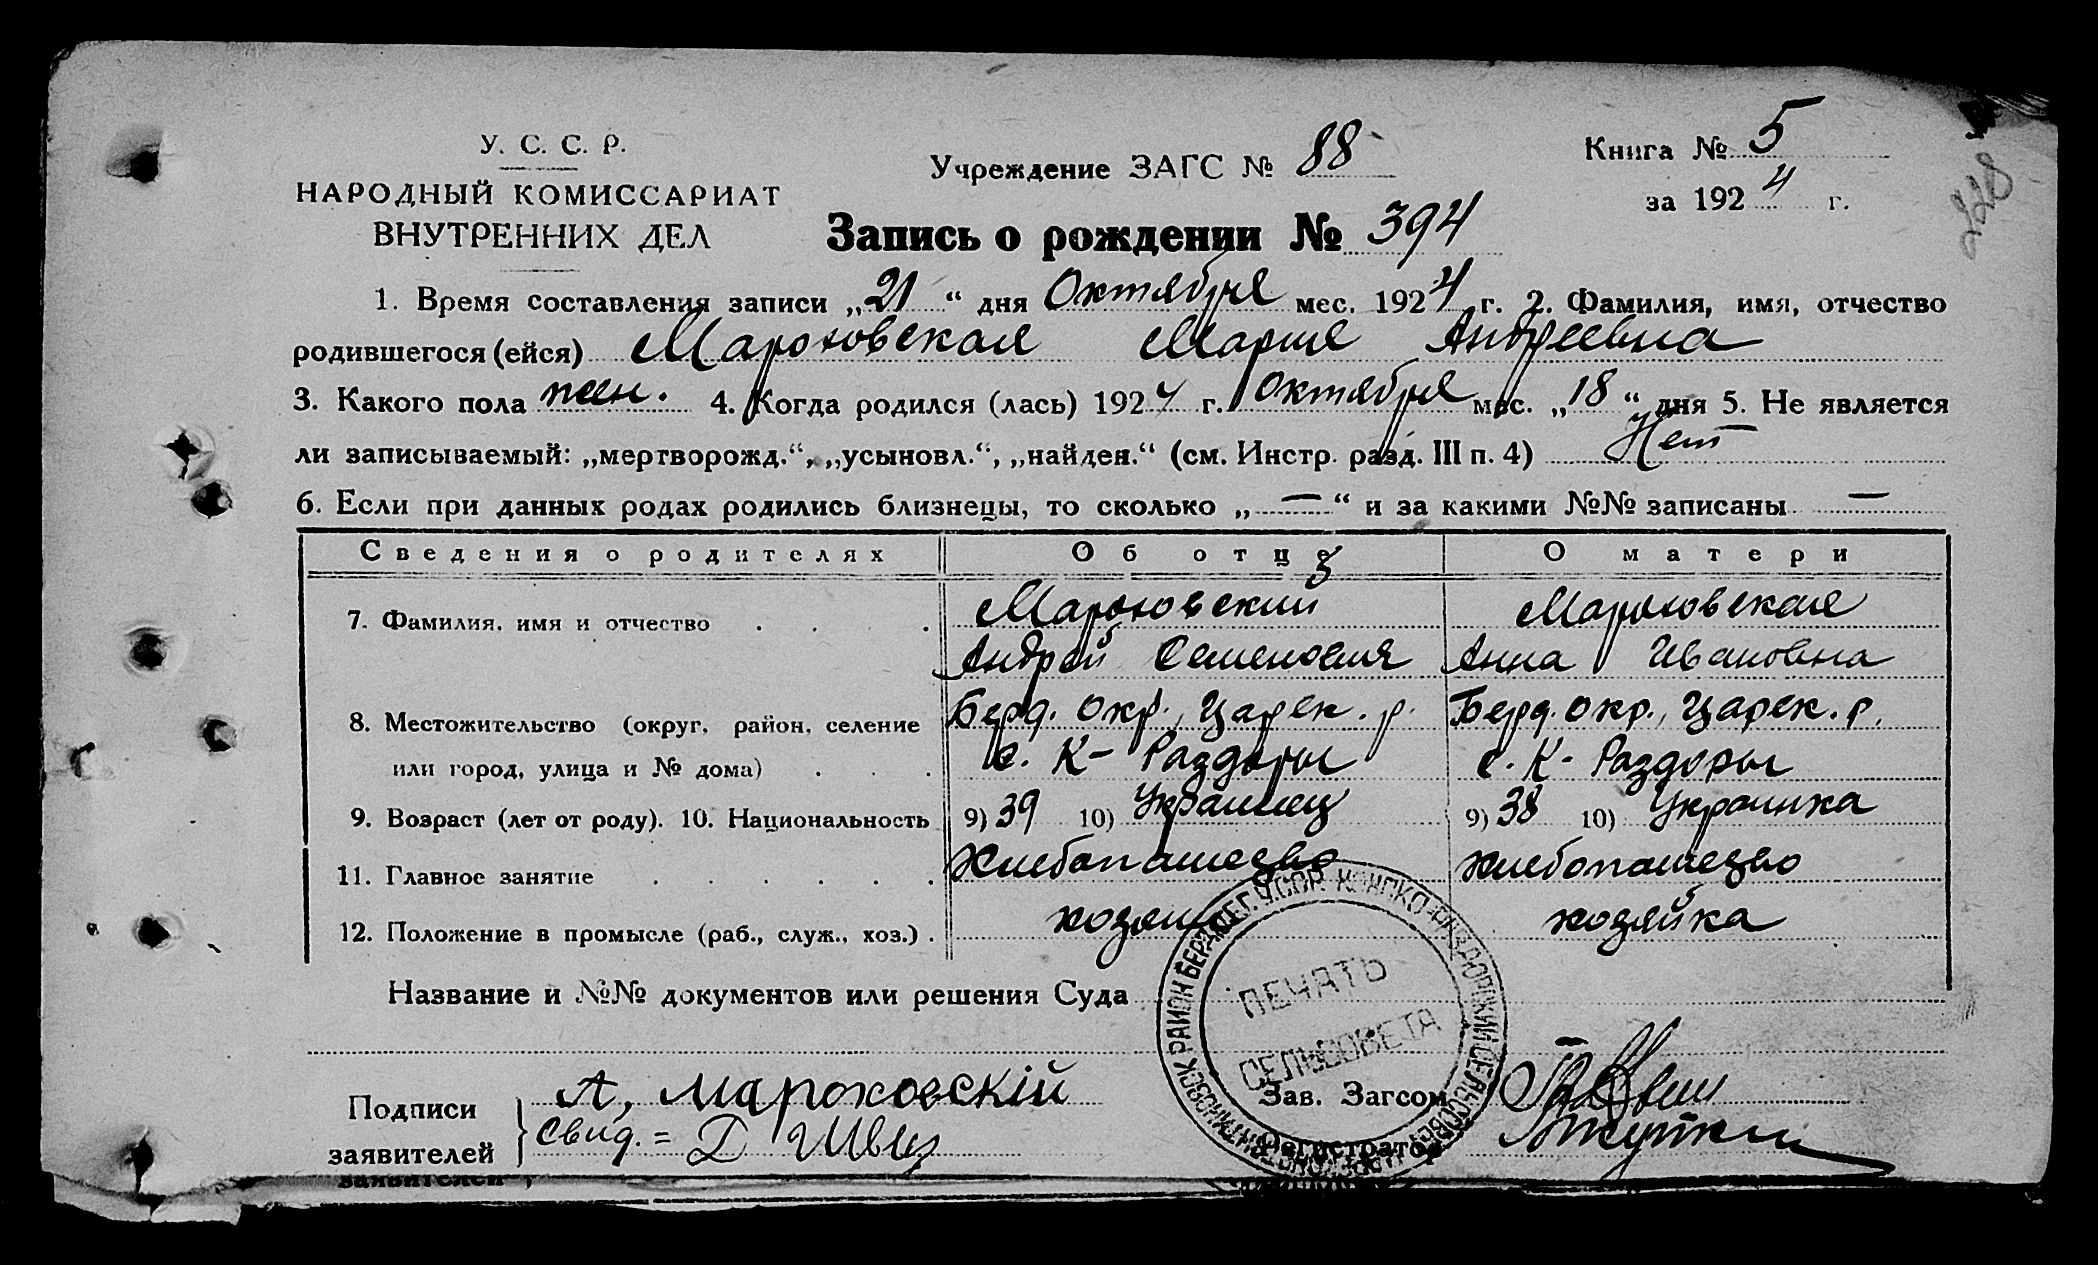 У. С. С. Р.
НАРОДНЫЙ КОМИССАРИАТ
ВНУТРЕННИХ ДЕЛ
Учреждение ЗАГС № 88
Книга № 5
за 1924 г.
Запись о рождении № 394
1. Время составления записи „21“ дня Октября мес. 1924 г. 2. Фамилия, имя, отчество
родившегося (ейся) Мароховская Мария Андреевна
3. Какого пола жен. 4. Когда родился (лась) 1924 г. Октября мес. „18“ дня 5. Не является
ли записываемый: „мертворожд.“, „усыновл.“, „найден.“ (см. Инстр. разд. III п. 4) Нет
6. Если при данных родах родились близнецы, то сколько „—“ и за какими №№ записаны —
Сведения о родителях Об отце О матери
7. Фамилия, имя и отчество Мароховский Мароховская
Андрей Анна Ивановна
8. Местожительство (округ, район, селение Берд. окр., Царек. р. Берд. окр., Царек. р.
или город, улица и № дома) с. К- Раздоры с. К- Раздоры
9. Возраст (лет от роду). 10. Национальность 9) 39 10) Украинец 9) 38 10) Украинка
11. Главное занятие Хлебопашество Хлебопашество
12. Положение в промысле (раб., служ., хоз.) хозяин хозяйка
Название и №№ документов или решения Суда
ПЕЧАТЬ
СЕЛЬСОВЕТА
Подписи
заявителей
А. Мароховскій
Свид. = Д Швец
Зав. Загсом
Регистратор
заявителей